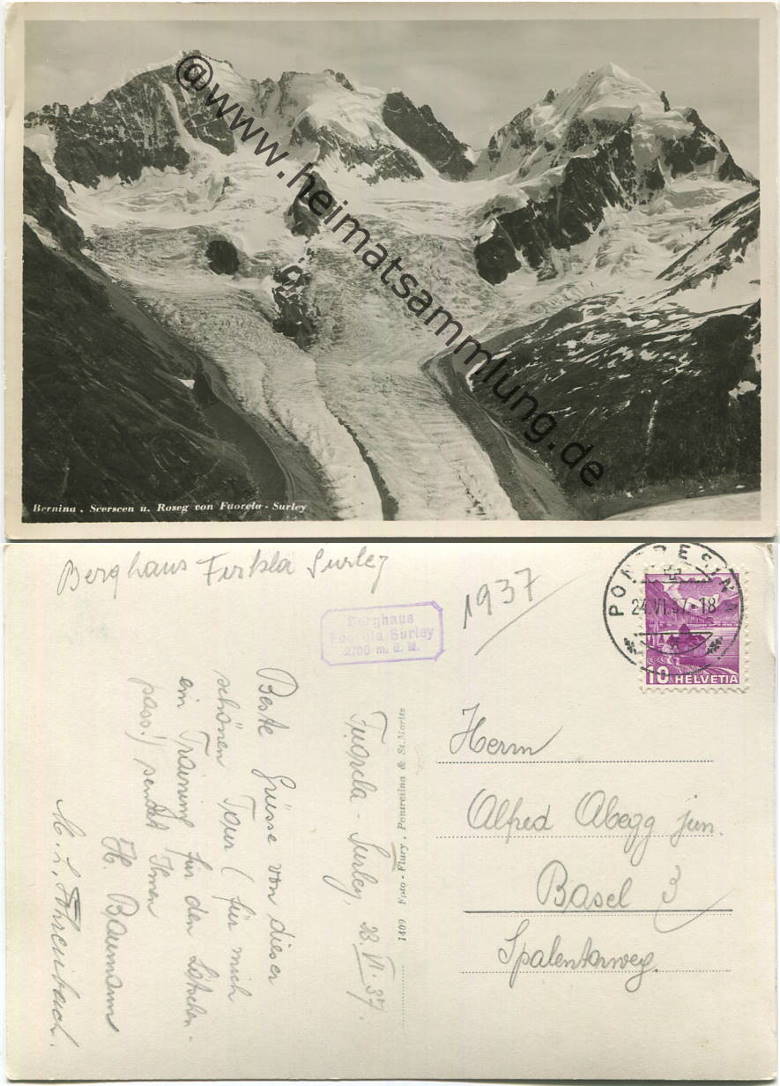 @www.heimatsammlung.de
Bernina, Scerscen u. Roseg von Fuorcla-Surley
Berghaus Furkla Surley
Berghaus
Fuorcla Surley
2760 m. ü. M.
1937
PONTRESINA
24.VI.37-18
10 HELVETIA
Fuorcla - Surley, 23. VI. 37.
Beste Grüsse von dieser
schönen Tour (für mich
ein Training für den Lötschen-
pass!) sendet Ihnen
H. Baumann
M. L. Fohrenbach.
1409 Foto-Flury, Pontresina & St. Moritz
Herrn
Alfred Abegg jun.
Basel 3
Spalentorweg.